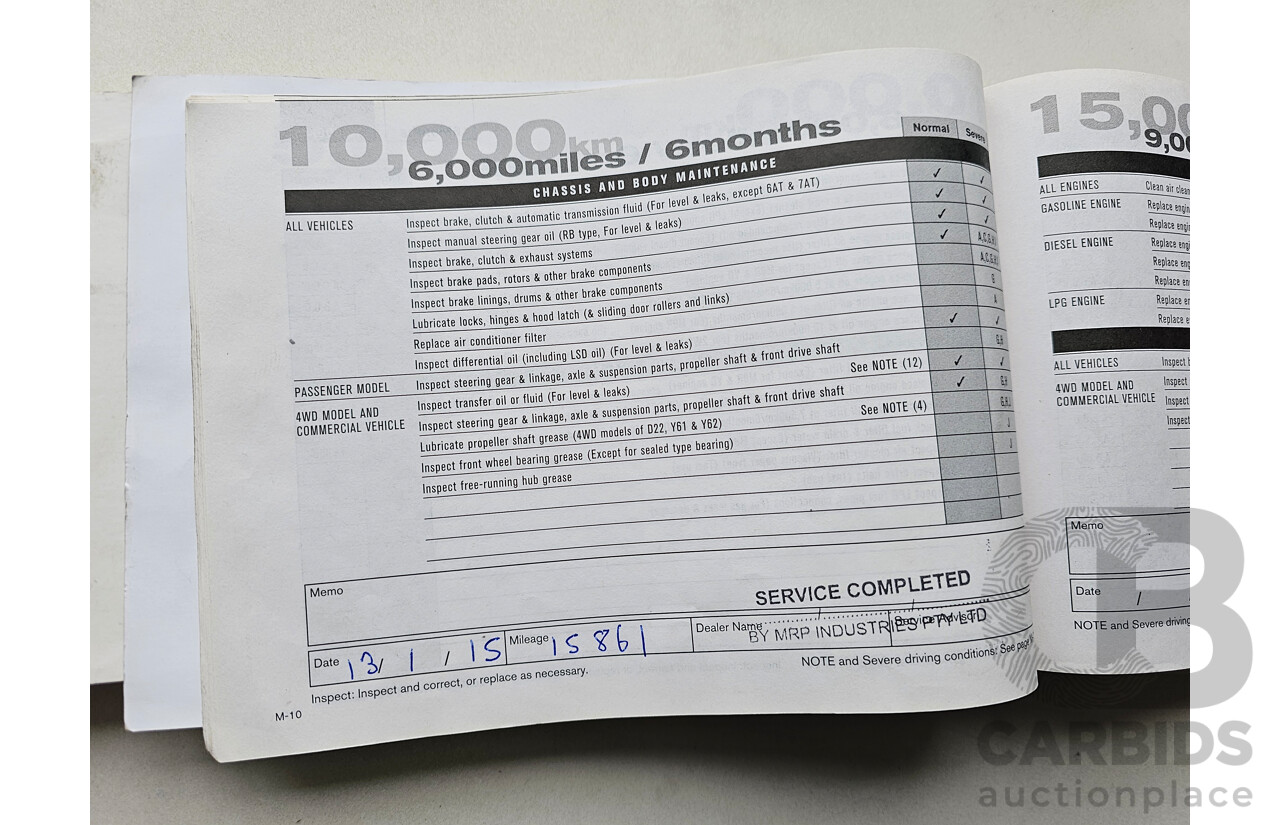 10,000km
6,000miles / 6months
Normal
CHASSIS AND BODY MAINTENANCE
ALL VEHICLES
Inspect brake, clutch & automatic transmission fluid (For level & leaks, except 6AT & 7AT) ✓ ✓
Inspect manual steering gear oil (RB type, For level & leaks) ✓ ✓
Inspect brake, clutch & exhaust systems ✓ ✓
Inspect brake pads, rotors & other brake components ✓
Inspect brake linings, drums & other brake components
Lubricate locks, hinges & hood latch (& sliding door rollers and links) G
Replace air conditioner filter A
Inspect differential oil (including LSD oil) (For level & leaks) ✓ ✓
PASSENGER MODEL
Inspect steering gear & linkage, axle & suspension parts, propeller shaft & front drive shaft G,H
4WD MODEL AND
COMMERCIAL VEHICLE
Inspect transfer oil or fluid (For level & leaks) See NOTE (12) ✓ ✓
Inspect steering gear & linkage, axle & suspension parts, propeller shaft & front drive shaft ✓ G,H
Lubricate propeller shaft grease (4WD models of D22, Y61 & Y62) See NOTE (4)
Inspect front wheel bearing grease (Except for sealed type bearing) J
Inspect free-running hub grease J
Memo
SERVICE COMPLETED
Date 13/ 1 / 15
Mileage 15861
Dealer Name
Service Advisor
BY MRP INDUSTRIES PTY LTD
Inspect: Inspect and correct, or replace as necessary.
NOTE and Severe driving conditions: See page
M-10
15,0
9,00
ALL ENGINES
Clean air
GASOLINE ENGINE
Replace
Replace
DIESEL ENGINE
Replace
Replace
Replace
LPG ENGINE
Replace
Replace
ALL VEHICLES
Inspect
4WD MODEL AND
COMMERCIAL VEHICLE
Inspect
Inspect
Inspect
Memo
Date /
NOTE and Severe driving
CB
CARBIDS
auctionplace